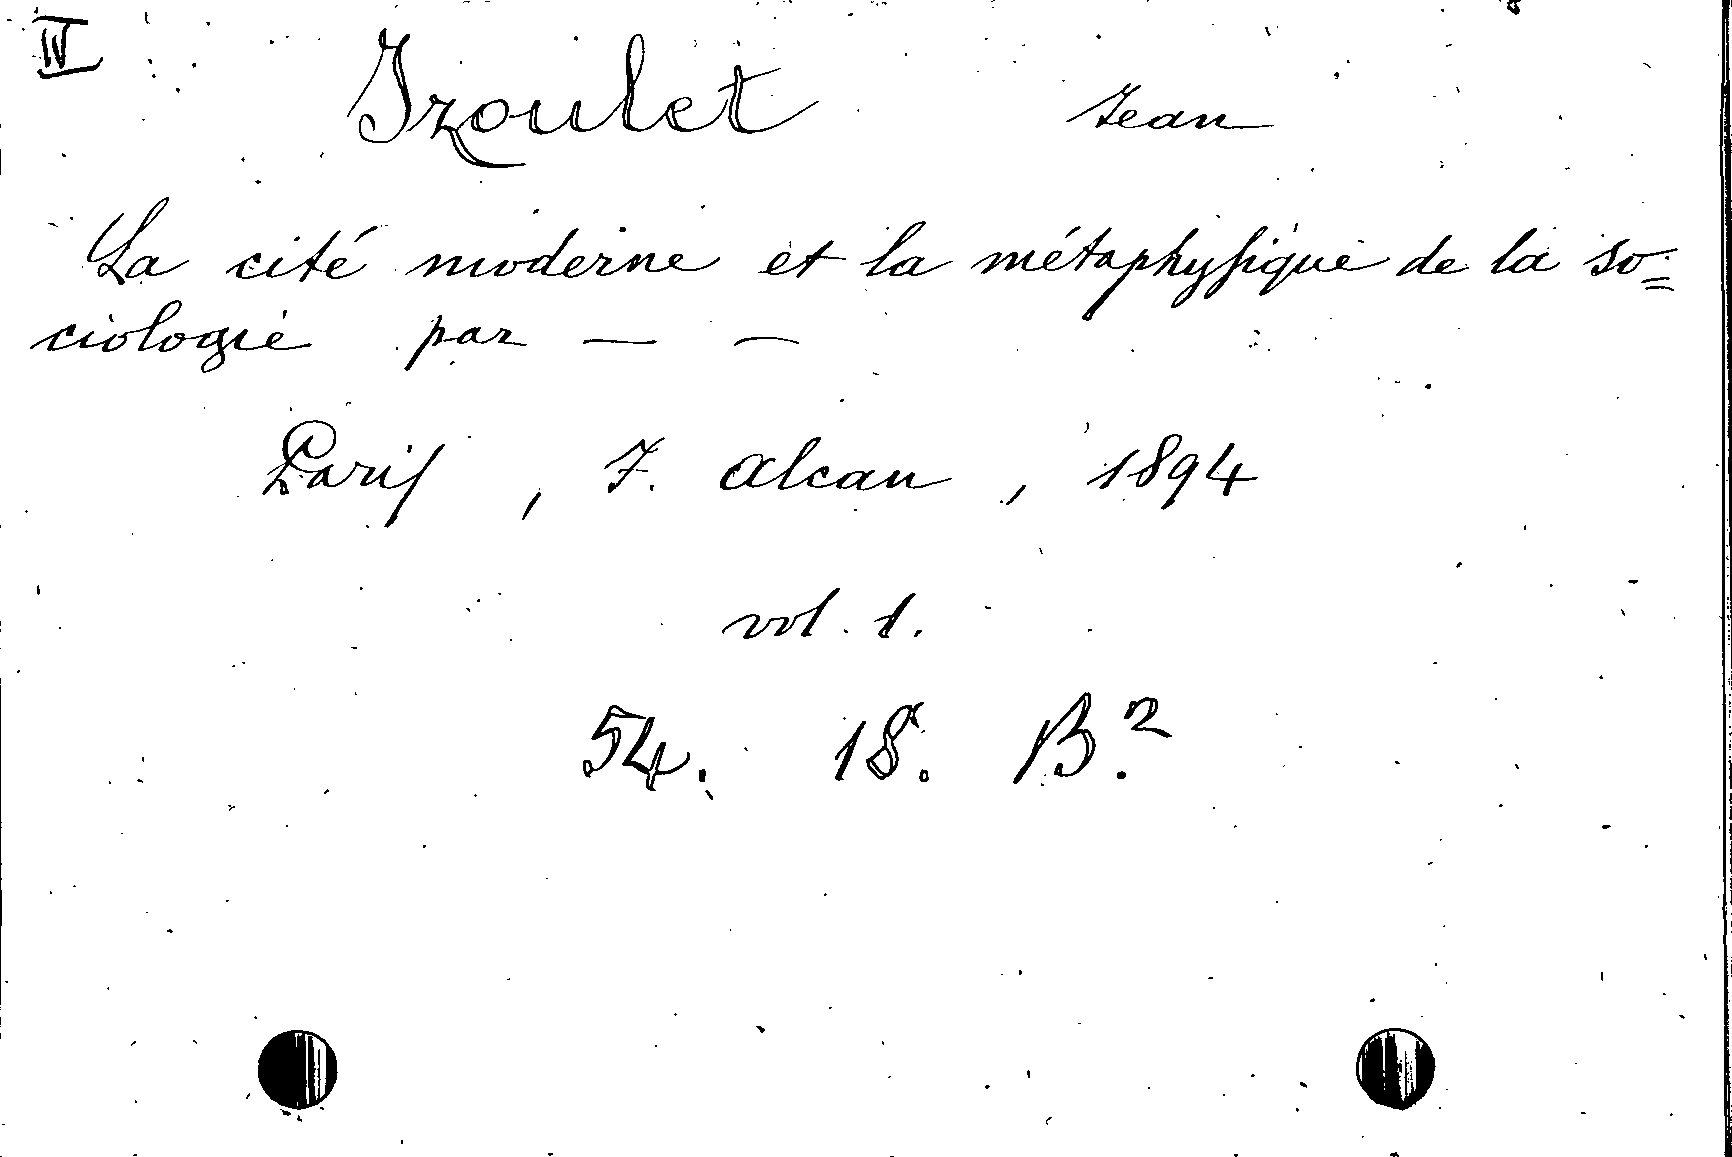 IV
Izoulet Jean
La cité moderne et la métaphysique de la so=
ciologie par — —
Paris, F. Alcan, 1894
vol. 1.
54. 18. B.²